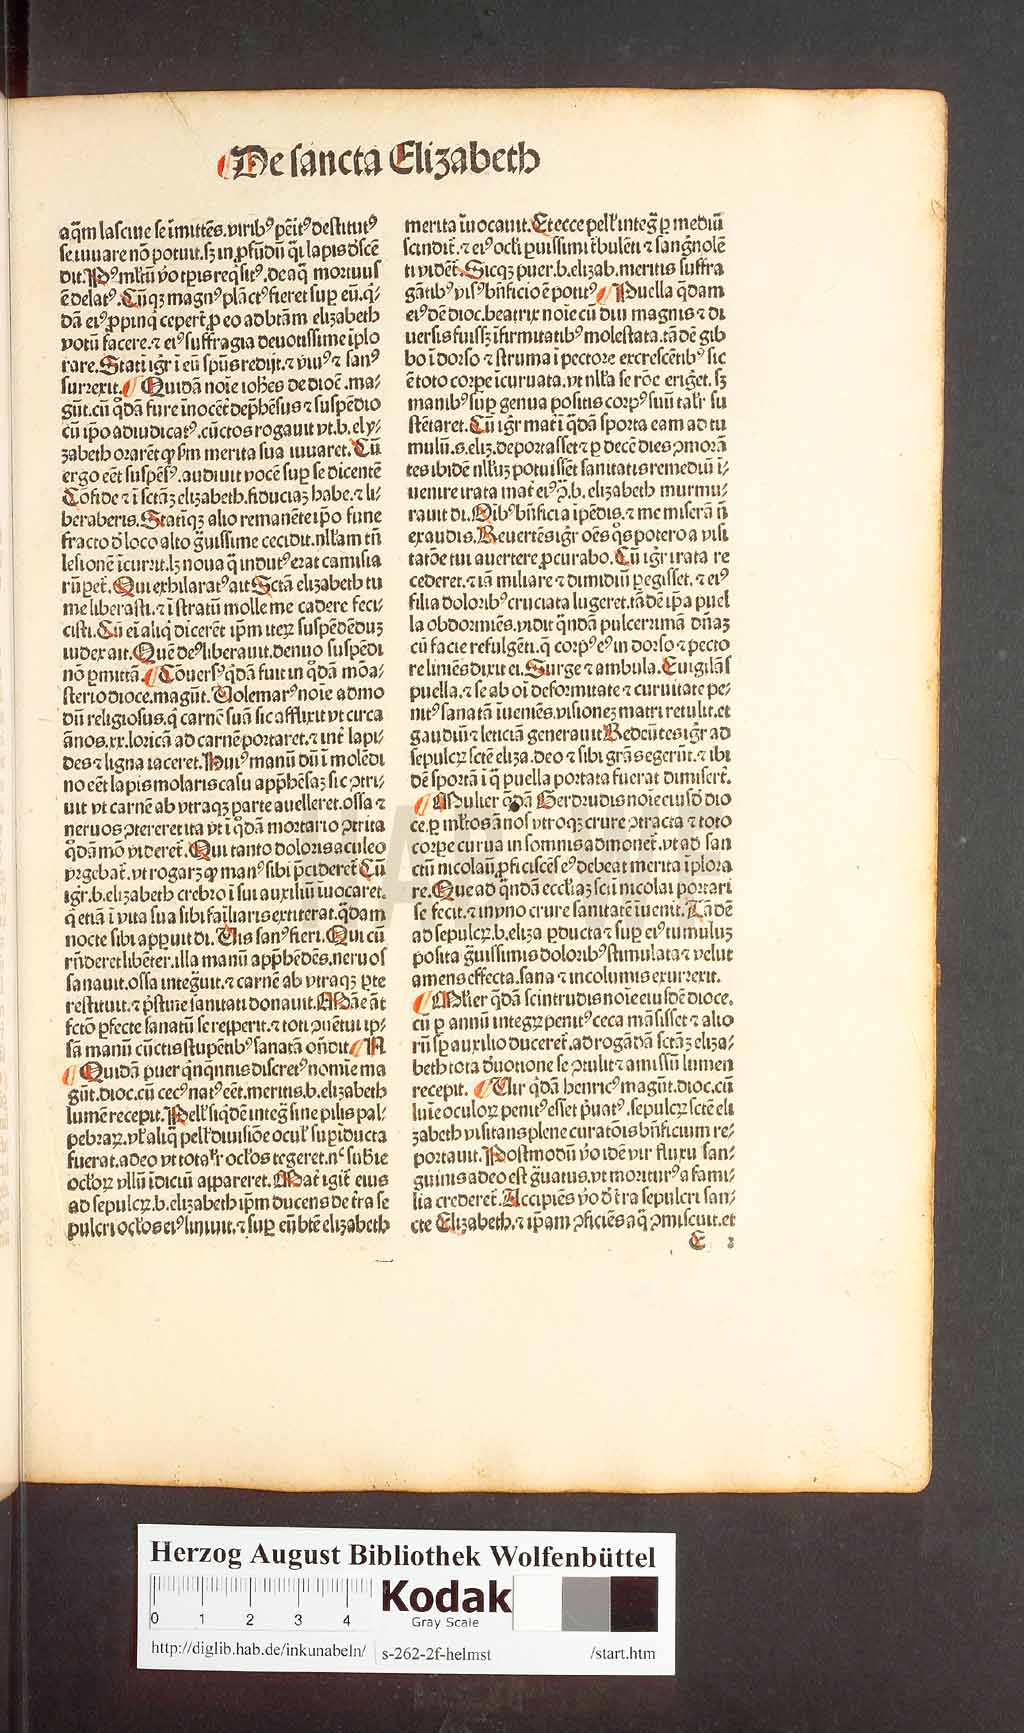 De sancta Elizabeth
aq̃m lasciue se īmittẽs. virib⁹ pẽit⁹ destitut⁹
se iuuare nõ potuit. sȝ in ꝓfũdũ q̃si lapis dscẽ
dit. P⁹ mltũ v̓o tꝑis req̃sit⁹. de aq̃ mortuus
ẽ delat⁹. Cũqȝ magn⁹ plãct⁹ fieret suꝑ eũ. q̃-
dã ei⁹ ꝓpinq̃ cepert̃ ꝓ eo ad btãm elizabeth
votũ facere. ⁊ ei⁹ suffragia deuotissime īplo
rare. Stati igr̃ ī eũ spũs redijt. ⁊ viu⁹ ⁊ san⁹
surrexit. Quidã noīe ioh̃es de dioẽ. ma-
gũt. cũ q̃dã fure inocẽt̃ dep̃hẽsus ⁊ suspẽdio
cũ ip̃o adiudicat⁹. cũctos rogauit vt. b. ely-
zabeth orarẽt ꝙ ꝑ sm̃ merita sua iuuaret. Cũ
ergo eẽt suspẽs⁹. audiuit vocẽ suꝑ se dicentẽ
Cõfide ⁊ ī sctãȝ elizabeth. fiduciaȝ habe. ⁊ li-
beraberis. Statīqȝ alio remanẽte ip̃o fune
fracto d̓ loco alto g̃uissime cecidit. nll̃am tñ
lesionẽ īcurrit. lȝ noua q̃ indut⁹ erat camisia
rũpet̃. Qui exhilarat⁹ ait Sctã elizabeth tu
me liberasti. ⁊ ī stratũ molle me cadere feci-
cisti. Cũ eī aliq̃ dicerẽt ip̃m iteꝝ suspẽdẽduȝ
iudex ait. Quẽ de⁹ liberauit. denuo suspẽdi
nõ ꝑmittã. Cõuers⁹ q̃dã fuit in q̃dã mõa-
sterio dioce. magũt. Uolemar⁹ noīe admo
dũ religiosus. q̃ carnẽ suã sic afflixit vt circa
ãnos. xx. loricã ad carnẽ portaret. ⁊ int̃ lapi-
des ⁊ ligna iaceret. Hui⁹ manũ dũ ī molẽdi
no eẽt lapis molaris casu app̃hẽsaȝ sic ꝯtri-
uit vt carnẽ ab vtraqȝ parte auelleret. ossa ⁊
neruos ꝯtereret ita vt ī q̃dã mortario ꝯtrita
q̃dã mõ videret̃. Qui tanto doloris aculeo
vrgebat̃. vt rogarȝ ꝙ man⁹ sibi p̃cideret̃ Cũ
igr̃. b. elizabeth crebro ī sui auxiliũ īuocaret.
q̃ etiã ī vita sua sibi fail̃iaris extiterat. q̃dam
nocte sibi apꝑuit di. Uis san⁹ fieri. Qui cũ
rñderet libẽter. illa manũ app̃hẽdẽs. neruos
sanauit. ossa integ̃uit. ⁊ carnẽ ab vtraqȝ ꝑte
restituit. ⁊ p̃stine sanitati donauit. Mãe āt
fctõ ꝑfecte sanatũ se repperit. ⁊ toti ꝯuẽtui ip-
sã manũ cũctis stupẽtib⁹ sanatã oñdit. N
Quidã puer q̃nq̃nnis discret⁹ nomie ma
gũt. dioc. cũ cec⁹ nat⁹ eẽt. meritis. b. elizabeth
lumẽ recepit. Pell̃ siq̃dẽ integ̃ sine pilis pal-
pebraꝝ. vl̃ aliq̃ pell̃ diuisiõe ocul̃ suꝑiducta
fuerat. adeo vt total̃r ocl̃os tegeret. nc̃ sub̃te
ocl̃oꝝ vllũ īdiciũ appareret. Mat̃ igit̃ eius
ad sepulcꝝ. b. elizabeth ip̃m ducens de t̃ra se
pulcri ocl̃os ei⁹ liniuit. ⁊ suꝑ eũ bt̃e elizabeth
merita īuocauit. Et ecce pell̃ integ̃ ꝑ mediũ
scindit̃. ⁊ ei⁹ ocl̃i puissimi t̃bulẽti ⁊ sang̃nolẽ
ti vidẽt̃. Sicqȝ puer. b. elizab. meritis suffra
gãtib⁹ vis⁹ bñficio ẽ potit⁹ Puella q̃dam
ei⁹dẽ dioc. beatrix noīe cũ diu magnis ⁊ di
uersis fuissȝ īfirmitatib⁹ molestata. tãdẽ gib
bo ī dorso ⁊ struma ī pectore excrescẽtib⁹ sic
ẽ toto corpe īcuruata. vt nll̃a se rõe eriget̃. sȝ
manib⁹ suꝑ genua positis corp⁹ suũ tal̃r su
stẽtaret. Cũ igr̃ mat̃ ī q̃dã sporta eam ad tu
mulũ. s. eliz. deportasset ⁊ ꝑ decẽ dies ꝯmorã
tes ibidẽ nll̃uȝ potuissẽt sanitatis remediũ ī-
uenire irata mat̃ ei⁹ ꝯ̃. b. elizabeth murmu-
rauit di. Oib⁹ bñficia īpẽdis. ⁊ me miserã ñ
exaudis. Reuertẽs igr̃ oẽs q̃s potero a visi
tatõe tui auertere ꝓcurabo. Cũ igr̃ irata re
cederet. ⁊ iã miliare ⁊ dimidiũ ꝑegisset. ⁊ ei⁹
filia dolorib⁹ cruciata lugeret. tãdẽ ip̃a puel
la obdormiẽs. vidit q̃ndã pulcerrimã dñaȝ
cũ facie refulgẽti. q̃ corp⁹ e⁹ in dorso ⁊ pecto
re liniẽs dixit ei. Surge ⁊ ambula. Euigilãs
puella. ⁊ se ab oĩ deformitate ⁊ curuitate pe-
nit⁹ sanatã īueniẽs. visioneȝ matri retulit. et
gaudiũ ⁊ leticiã generauit Redeũtes igr̃ ad
sepulcꝝ scte eliza. deo ⁊ sibi grãs egerũt. ⁊ ibi
dẽ sportã ī q̃ puella portata fuerat dimisert̃.
Mulier q̃dã Gerdrudis noīe eiusdẽ dio
ce. ꝑ ml̃tos ãnos vtroqȝ crure ꝯtracta ⁊ toto
corpe curua in somnis admonet̃. vt ad san
ctũ nicolaũ ꝓficiscẽs e⁹ debeat merita īplora
re. Que ad q̃ndã eccl̃iaȝ scti nicolai portari
se fecit. ⁊ in vno crure sanitatẽ īuenit. Tãdẽ
ad sepulcꝝ. b. eliza ꝑducta ⁊ suꝑ ei⁹ tumuluȝ
posita g̃uissimis dolorib⁹ stimulata ⁊ velut
amens effecta. sana ⁊ incolumis exurrexit.
Ml̃ier q̃dã scintrudis noīe eiusdẽ dioce.
cũ ꝑ annũ integꝝ penit⁹ ceca mãsisset ⁊ alio
rũ sꝑ auxilio duceret̃. ad rogãdã sctãȝ eliza-
beth tota d̓uotione se ꝯtulit ⁊ amissũ lumen
recepit. Uir q̃dã henric⁹ magũt. dioc. cũ
luīe oculoꝝ penit⁹ esset p̃uat⁹. sepulcꝝ scte eli
zabeth visitans plene curatõis bñficium re-
portauit. Postmodũ v̓o idẽ vir fluxu san-
guinis adeo est g̃uatus. vt moritur⁹ a fami-
lia crederet̃. Accipiẽs v̓o d̓ t̃ra sepulcri san-
cte Elizabeth. ⁊ ip̃am ꝓficiẽs aq̃ ꝯmiscuit. et
E 2
Herzog August Bibliothek Wolfenbüttel
0 1 2 3 4
Kodak
Gray Scale
http://diglib.hab.de/inkunabeln/ s-262-2f-helmst /start.htm
HAB WF